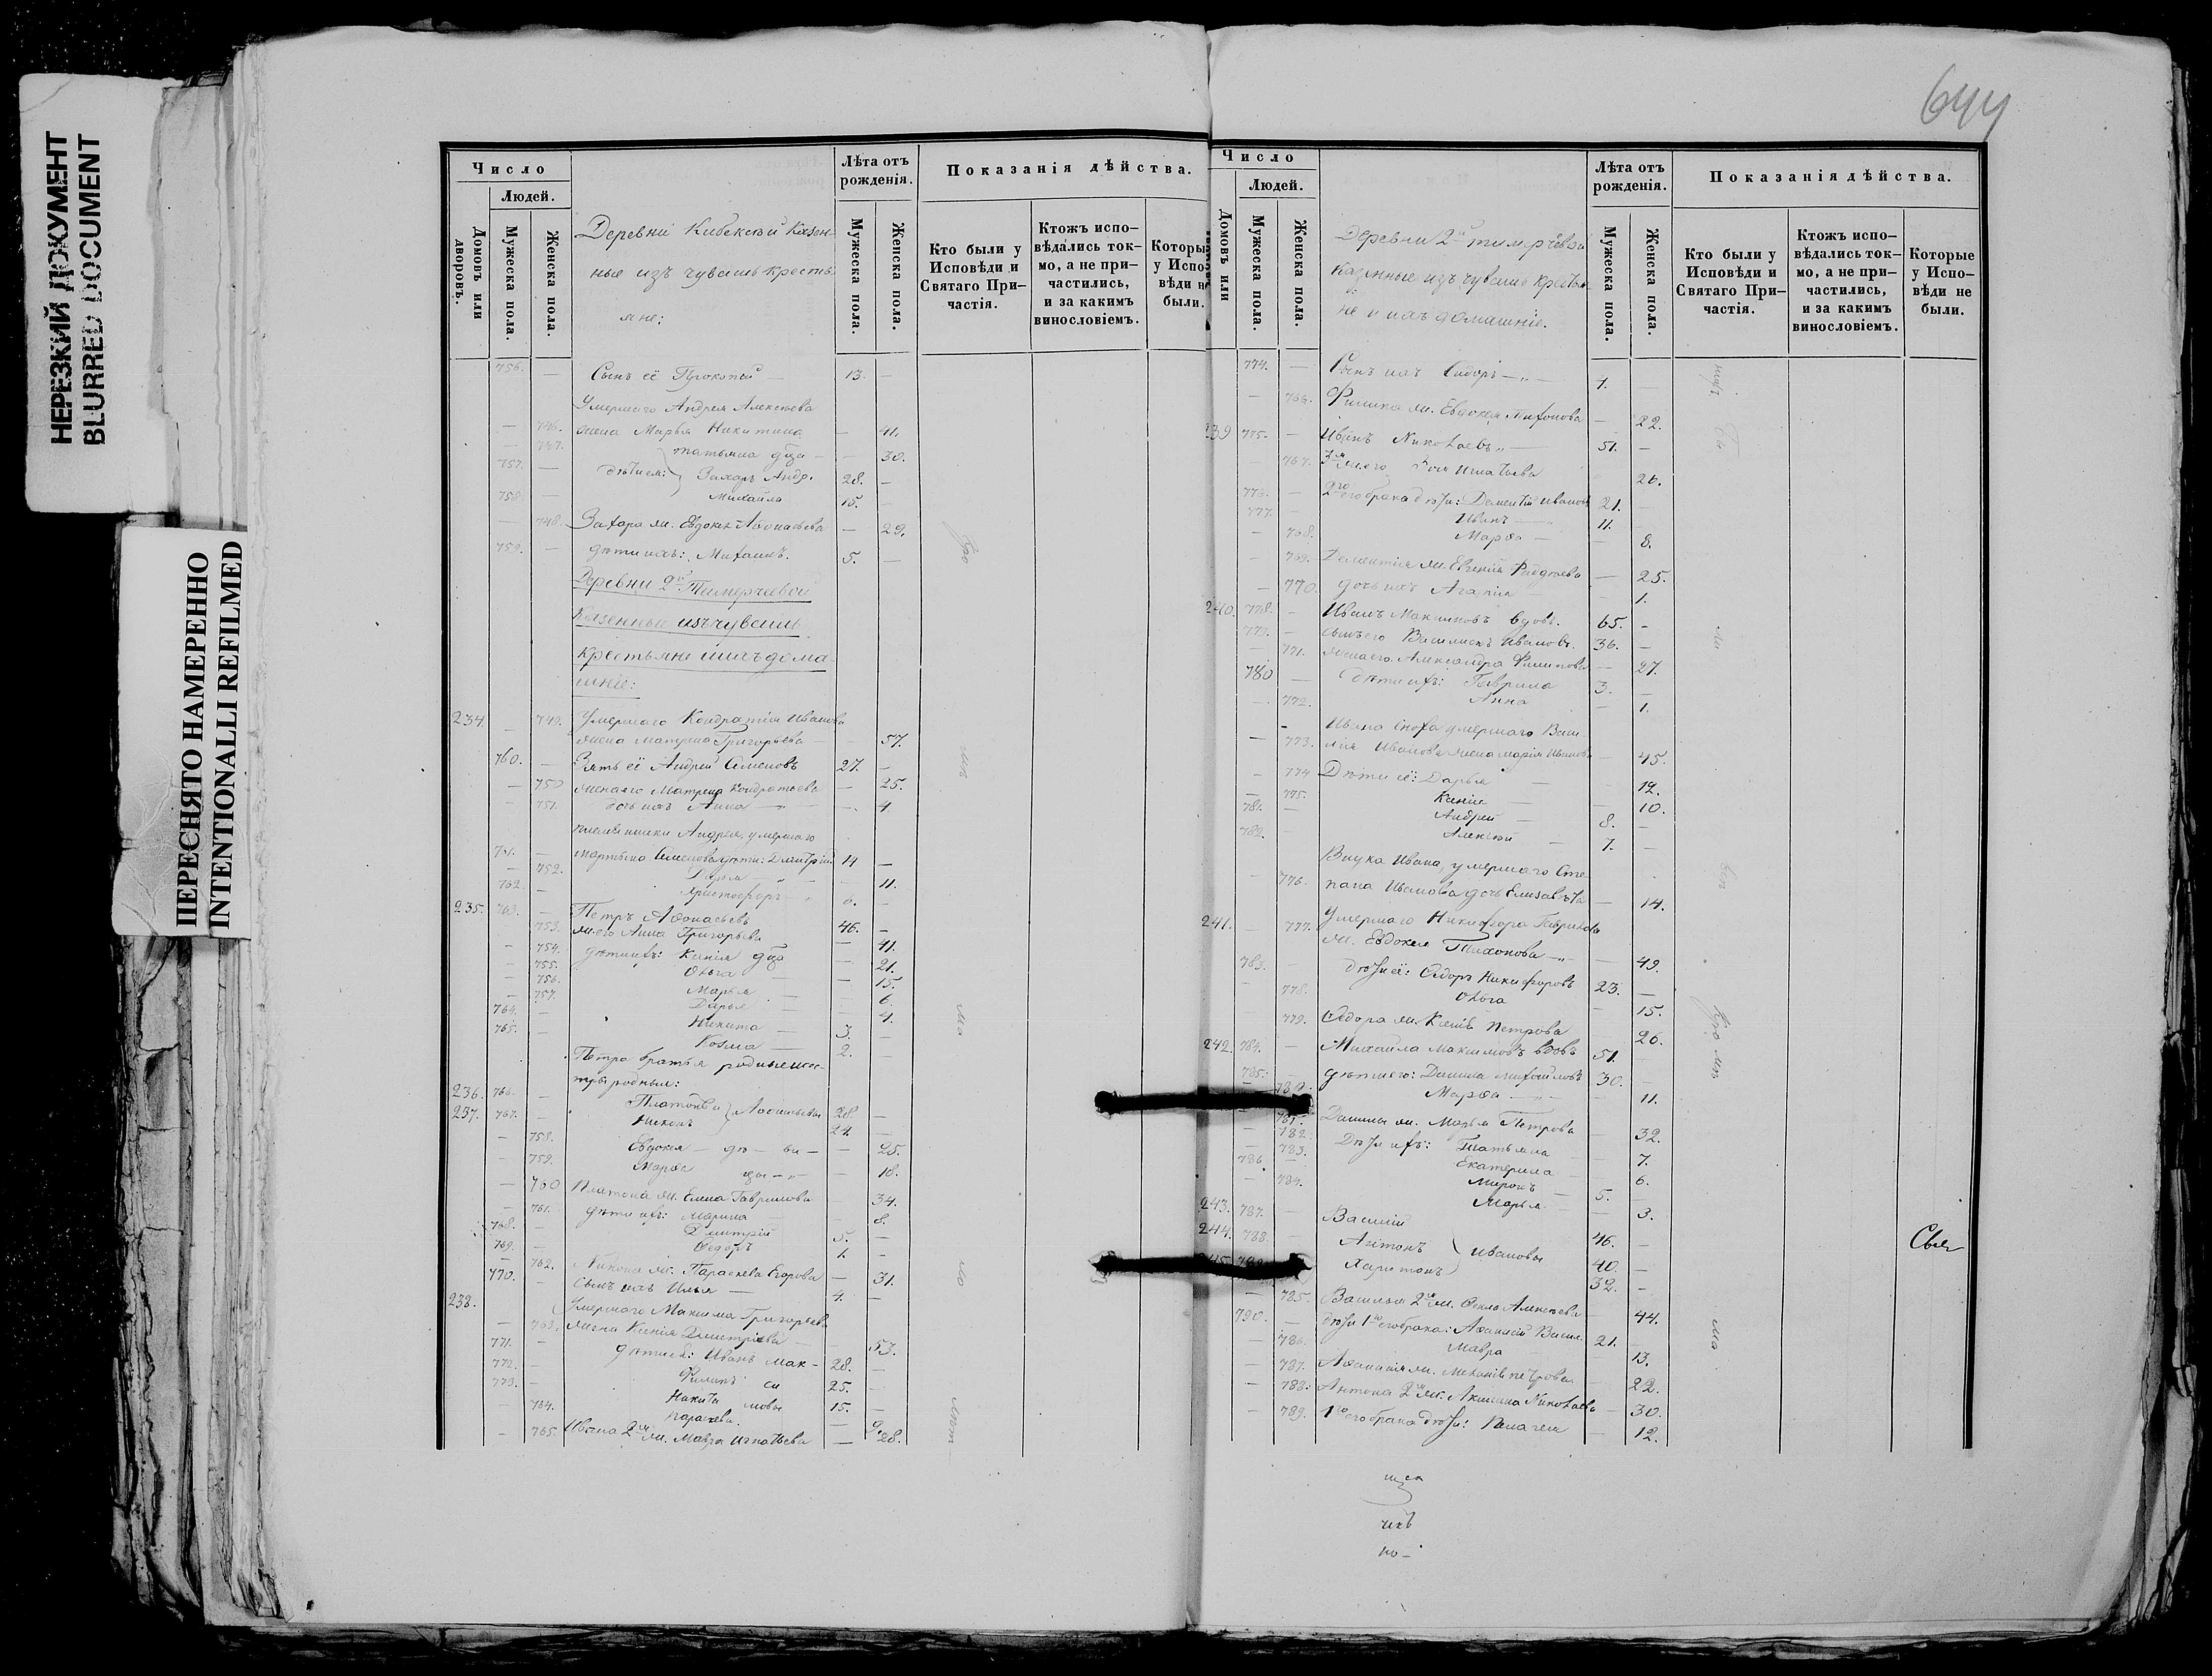 НЕРЕЗКИЙ ДОКУМЕНТ
BLURRED DOCUMENT
ПЕРЕСНЯТО НАМЕРЕННО
INTENTIONALLI REFILMED
Число
Людей.
Домовъ или дворовъ.
Мужеска пола.
Женска пола.
Деревни Кибекской Казен-
ные изъ чувашъ кресть-
яне:
Лѣта отъ рожденія.
Мужеска пола.
Женска пола.
Показанія дѣйства.
Кто были у Исповѣди и Святаго При-частія.
Ктожъ испо-вѣдались ток-мо, а не при-частились, и за какимъ винословіемъ.
Которы у Испо-вѣди не были.
756. — Сынъ её Прокопій — 13. —
Умершаго Андрея Алексѣева
— 746. жена Марья Никитина — 41.
— 747. Татьяна — 30.
757. — Захаръ Андр. 28. —
758 — Михайла 15. —
— 748. Захара ж. Евдокія Аѳонасьева — 29.
759. — дѣти ихъ: Михаилъ. 5. —
Деревни 2й Тимерчеевой
Казенные изъ чувашъ
крестьяне и ихъ дома-
шніе:
234. — 749. Умершаго Кондратія Иванова
жена Матрена Григорьева — 57.
760. — Зять её Андрей Семеновъ 27. —
— 750 жена его Матрена Кондратьева — 25.
— 751. дочь ихъ Анна — 4
племянники Андрея, умершаго
761. — Мартына Семенова дѣти: Дмитрій 14 —
— 752. Дарья — 11.
762. — Христофоръ 6. —
235. 763. — Петръ Аѳонасьевъ 46. —
753. ж. его Анна Григорьева — 41.
— 754. дѣти ихъ: Ксенія — 21.
— 755. Ольга — 15.
— 756. Марья — 6.
— 757. Дарья — 4.
764. — Никита — 3. —
765. — Козма — 2. —
Петра братья родные и сес-
тры родныя:
236. 766. — Платонъ и Аѳонасьевы 28. —
237. 767. — Никонъ 24. —
— 758. Евдокія — дѣ — ви — 25.
— 759. Марѳа цы — 18.
— 760 Платона ж. Елена Гаврилова — 34.
— 761. дѣти ихъ: Марина — 8.
768. — Дмитрій 5. —
769. — Ѳедоръ 1. —
— 762. Никона ж. Параскева Егорова — 31.
770. — сынъ ихъ Илья — 4. —
238. Умершаго Максима Григорьева
— 763. жена Ксенія Дмитріева — 53.
771. — дѣти её: Иванъ Мак- 28. —
772. — Филипъ си 25. —
773. — Никита мовы 15. —
— 764. Параскева. — 9.
— 765. Ивана 2я ж. Мавра Игнатьева — 28.
644
Число
Людей.
Домовъ или
Мужеска пола.
Женска пола.
Деревни 2й Тимерчевой
Казенные изъ чувашъ крестья-
не и ихъ домашніе.
Лѣта отъ рожденія.
Мужеска пола.
Женска пола.
Показанія дѣйства.
Кто были у Исповѣди и Святаго При-частія.
Ктожъ испо-вѣдались ток-мо, а не при-частились, и за какимъ винословіемъ.
Которые у Испо-вѣди не были.
774. — Сынъ ихъ Сидоръ — 4. —
— 766. Филипа ж. Евдокея Тихонова — 22.
239 775. — Иванъ Николаевъ — 51. —
— 767. Игнатьева 26.
776. — 2го его брака дѣти: Дементій Ивановъ 21. —
777. — Иванъ — 11. —
— 768. Марѳа — 8.
— 769. Дементія ж. Евгенія — 25.
— 770. дочь ихъ Агапія — 1.
240. 778. — Иванъ Максимовъ вдовъ. 65. —
779. — сынъ его Василискъ Ивановъ. 36. —
— 771. жена его Александра Филипова — 27.
780 — дѣти ихъ: Гаврила 3. —
— 772. Анна — 1.
Ивана сноха умершаго Васи-
— 773. лія Иванова жена Марія Иванова 45.
— 774 Дѣти её: Дарья — 12.
— 775. Ксенія — 10.
781. — Андрей — 8. —
782. Алексѣй — 7. —
Внука Ивана, умершаго Сте-
— 776. пана Иванова дочь Елизавѣта — 14.
241. — 777. Умершаго Никифора Гаврилова
ж. Евдокея Тихонова — 49.
783. — дѣти её: Ѳедоръ Никифоровъ 23. —
— 778. Ольга — 15.
— 779. Ѳедора ж. Ксенія Петрова — 26.
242. 784. — Михайла Максимовъ вдовъ 51. —
785. — дѣти его: Данила Михайловъ 30. —
— 780. Марѳа — 11.
— 781. Данилы ж. Марья Петрова — 32.
— 782. Дѣти ихъ: Татьяна — 7.
— 783. Екатерина — 6.
786 — Миронъ 5. —
— 784. Марья — 3.
243. 787. — Василій 46. —
244. 788. Антонъ Ивановы 40. —
245. 789. Харитонъ 32. —
Свя
— 785. Василья 2я ж. Ѳекла Алексѣева — 44.
790. — дѣти 1го его брака: Аѳанасій Васил. 21. —
— 786. Мавра — 13.
— 787. Аѳанасія ж. Петрова 22.
— 788. Антона 2я ж. Акилина Николаева — 30.
— 789. 1го его брака дѣти: Пелагея — 12.